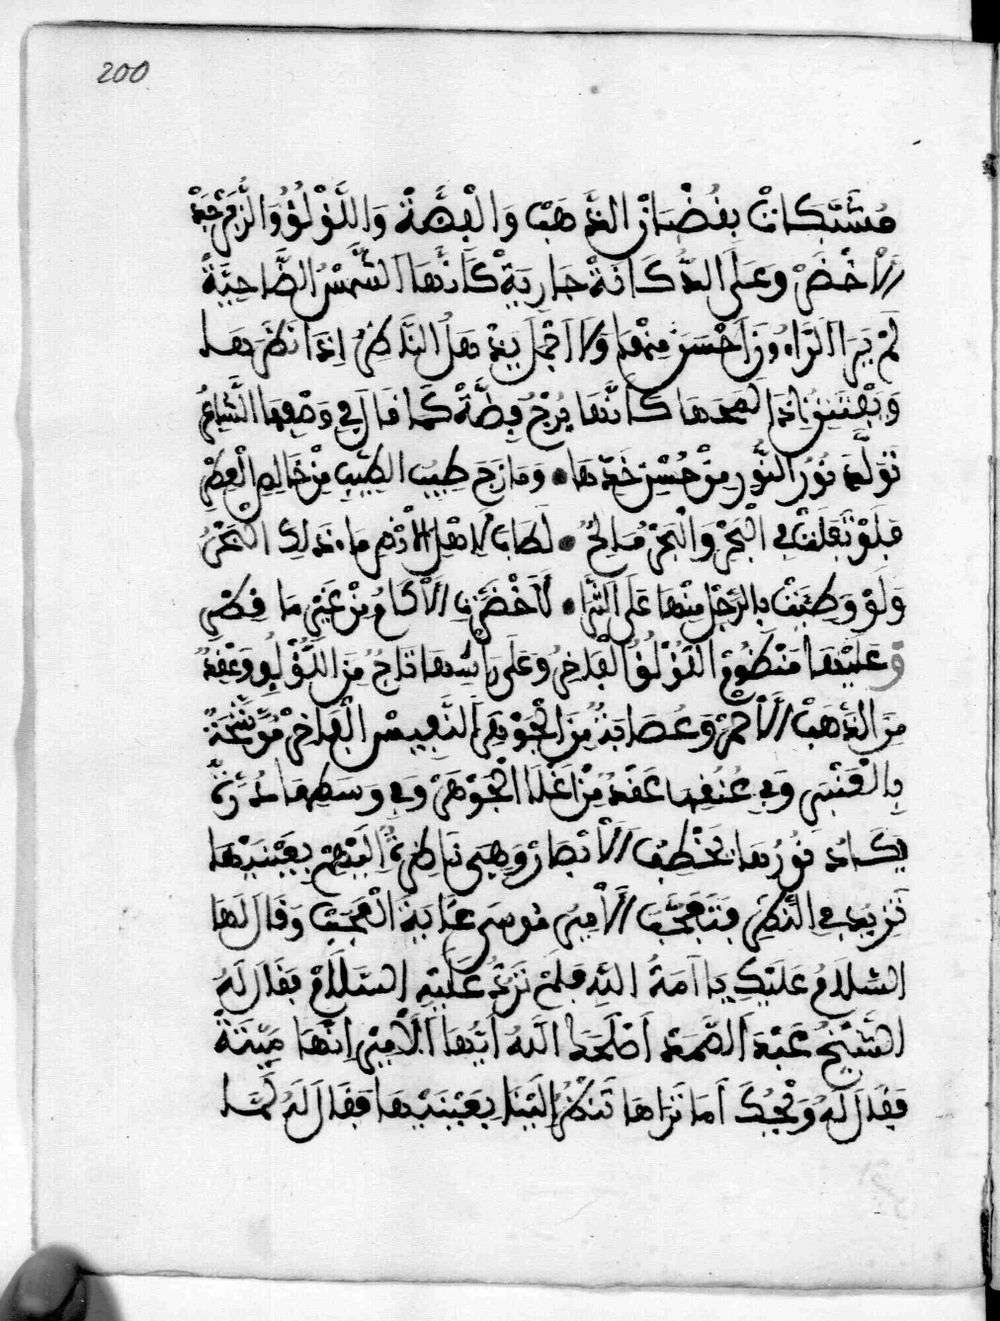 200
مُشَبَّكَاتْ بقُضْبَانْ الذَّهَبْ وَالْفِضَّةْ وَاللُّؤْلُؤْ وَالزَّبَرْجَدْ
الْأَخْضَرْ وَعَلَى الدُّكَانَةْ جَارِيَةْ كَأَنَّهَا الشَّمْسُ الضَّاحِيَّةْ
لَمْ يَرَ الرَّاءُونَ أَحْسَنَ مِنْهَا وَلَا أَجْمَلَ يَنْدَهَلُ النَّاظِرُ إِذَا نَظَرَهَا
وَيَفْتَتِنُ إِذَا لَمَحَهَا كَأَنَّهَا بُرْجُ فِضَّةْ كَمَا قَالَ فِي وَصْفِهَا الشَّاعِرُ
تَوَلَّدَ نُورُ النُّورِ مِنْ حُسْنِ خَدِّهَا • وَمَازَجَ طِيبُ الطِّيبِ مِنْ خَالِصِ الْعِطْرِ
فَلَوْ تَفَلَتْ فِي الْبَحْرِ وَالْبَحْرُ مَالِحُ • لَطَابَ لِأَهْلِ الْأَرْضِ مَاء ذَلِكَ الْبَحْرُ
وَلَوْ وَطِئَتْ بِالرِّجْلِ مِنْهَا عَلَى الثَّرَا • لَأَخْضَرَّتِ الْأَكَامُ مِنْ غَيْرِ مَا قِطْرِ
وَعَلَيْهَا مَنْظُومْ اللُّؤْلُؤُ الْفَاخِرُ وَعَلَى رَأْسِهَا تَاجُ مِنَ اللُّؤْلُؤِ وَعَقْدُ
مِنَ الذَّهَبْ الْأَحْمَرْ وَعُصَابَةُ مِنَ الْجَوْهَرِ النَّفِيسْ الْفَاخِرْ مُوَشَّحَةُ
بِالْعَنْبَرِ وَفِي عُنُقِهَا عَقْدُ مِنْ أَغْلَا الْجَوْهَرْ وَفِي وَسَطِهَا دُرَّةُ
يَكَادُ نُورُهَا يَخْطِفُ الْأَبْصَارْ وَهِيَ نَاظِرَةُ إِلَيْهِمْ بِعَيْنَيْهَا
تَزِيدُ فِي النَّظَرِ فَتَعَجَّبَ الْأَمِيرُ مُوسَى غَايَةَ الْعَجَبْ وَقَالَ لَهَا
السَّلَامُ عَلَيْكِ يَا أَمَةُ اللَّهِ فَلَمْ تَرُدُّ عَلَيْهِ السَّلَامْ فَقَالَ لَهُ
الشَّيْخُ عَبْدَ الصَّمَدْ أَصْلَحَكَ اللَّهُ أَيُّهَا الْأَمِيرُ إِنَّهَا مَيْتَةُ
فَقَالَ لَهُ وَيْحُكَ أَمَا تَرَاهَا تَنْظُرُ إِلَيْنَا بِعَيْنَيْهَا فَقَالَ لَهُ لَمَّا